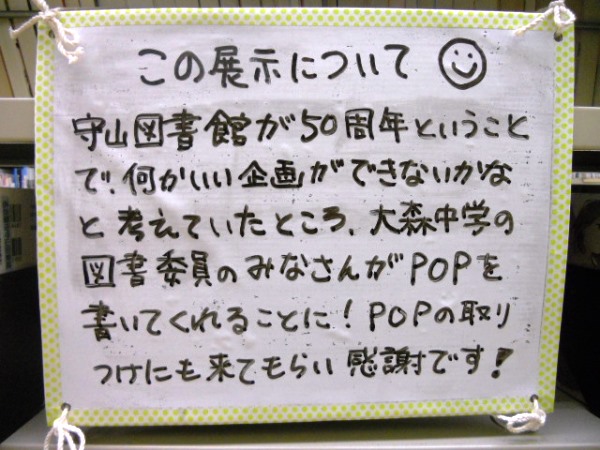 この展示について
守山図書館が50周年ということ
で、何かいい企画ができないかな
と考えていたところ、大森中学の
図書委員のみなさんがPOPを
書いてくれることに！POPの取り
つけにも来てもらい感謝です！